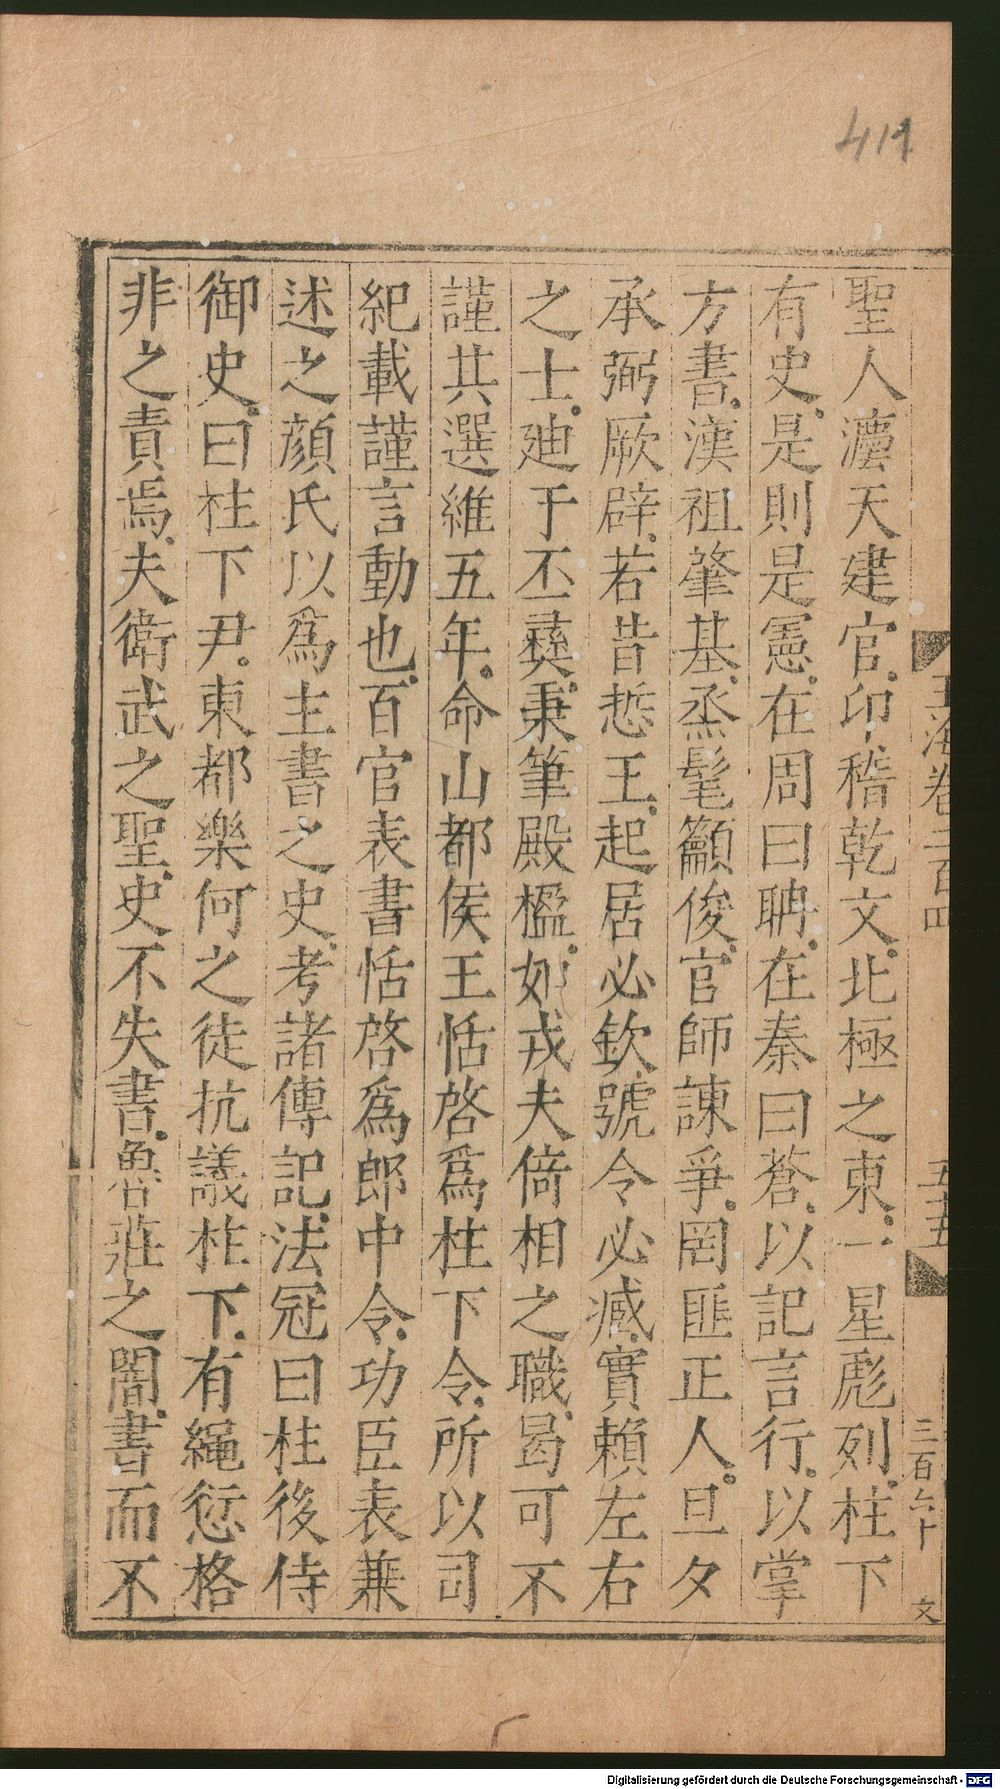 411
玉海卷二百四
五十五
三百六十
文
聖人灋天建官。卬稽乾文。北極之東。一星彪列。柱下
有史。是則是憲。在周曰聃。在秦曰蒼。以記言行。以掌
方書。漢祖肇基。烝髦籲俊。官師諫爭。罔匪正人。旦夕
承弼厥辟。若昔悊王。起居必欽。號令必臧。實賴左右
之士。廸于丕彞。秉筆殿楹。如戎夫倚相之職。曷可不
謹其選維五年。命山都侯王恬啓爲柱下令。所以司
紀載謹言動也。百官表書恬啓爲郎中令。功臣表兼
述之顔氏以爲主書之史。考諸傳記。法冠曰柱後侍
御史。曰柱下尹。東都樂何之徒抗議柱下。有繩愆格
非之責焉。夫衛武之聖。史不失書。魯莊之闇。書而不
Digitalisierung gefördert durch die Deutsche Forschungsgemeinschaft - DFG